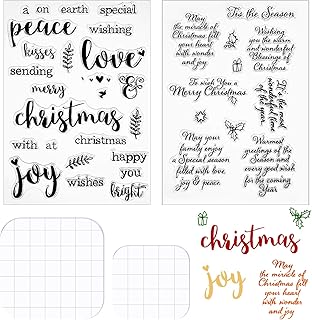 a on earth special
peace wishing
kisses love
sending
merry &
christmas
with at christmas
joy happy
you
wishes bright
May
the miracle of
Christmas fill
your heart
with wonder
and joy
'Tis the Season
Wishing you
the warm
and wonderful
Blessings of
Christmas
To wish You a
Merry Christmas
It's the most
wonderful time
of the year
May your
family enjoy
a Special season
filled with love
joy & peace
Warmest
greetings of the
Season and
every good wish
for the coming
Year
christmas
joy
May
the miracle of
Christmas fill
your heart
with wonder
and joy